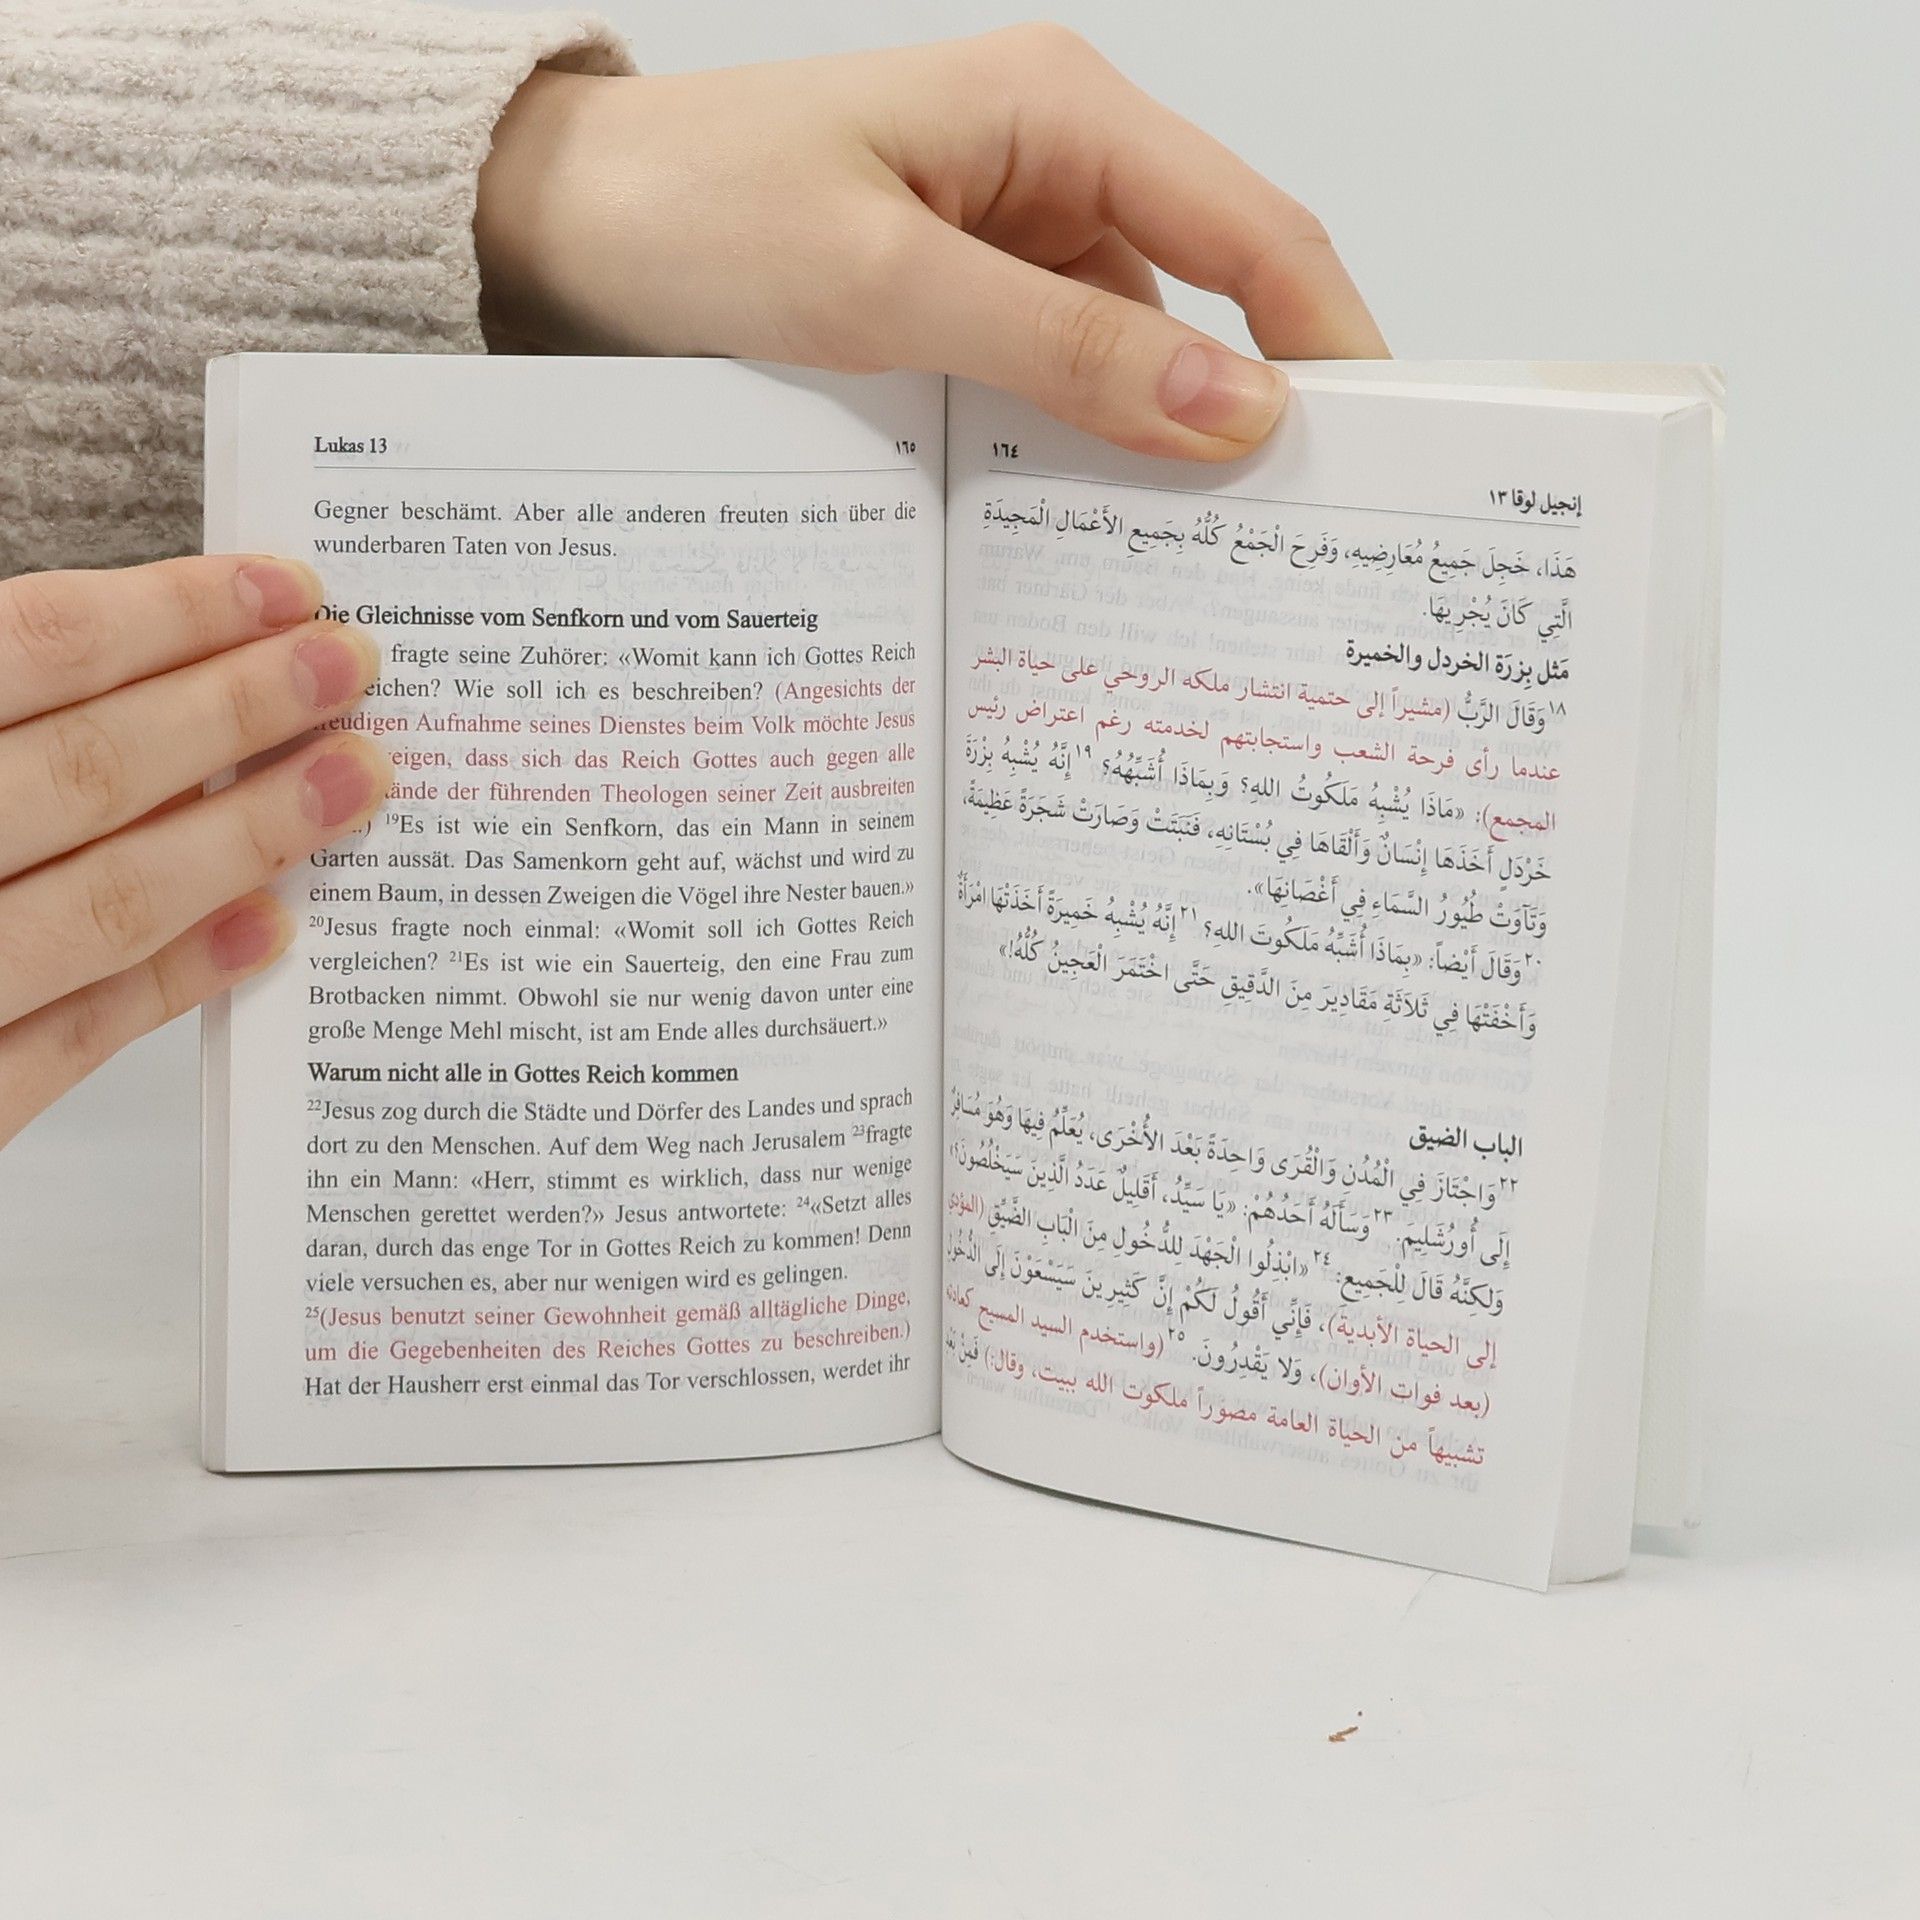 Lukas 13
١٦٥
Gegner beschämt. Aber alle anderen freuten sich über die
wunderbaren Taten von Jesus.
Die Gleichnisse vom Senfkorn und vom Sauerteig
fragte seine Zuhörer: «Womit kann ich Gottes Reich
eichen? Wie soll ich es beschreiben? (Angesichts der
freudigen Aufnahme seines Dienstes beim Volk möchte Jesus
eigen, dass sich das Reich Gottes auch gegen alle
ände der führenden Theologen seiner Zeit ausbreiten
.) ¹⁹Es ist wie ein Senfkorn, das ein Mann in seinem
Garten aussät. Das Samenkorn geht auf, wächst und wird zu
einem Baum, in dessen Zweigen die Vögel ihre Nester bauen.»
²⁰Jesus fragte noch einmal: «Womit soll ich Gottes Reich
vergleichen? ²¹Es ist wie ein Sauerteig, den eine Frau zum
Brotbacken nimmt. Obwohl sie nur wenig davon unter eine
große Menge Mehl mischt, ist am Ende alles durchsäuert.»
Warum nicht alle in Gottes Reich kommen
²²Jesus zog durch die Städte und Dörfer des Landes und sprach
dort zu den Menschen. Auf dem Weg nach Jerusalem ²³fragte
ihn ein Mann: «Herr, stimmt es wirklich, dass nur wenige
Menschen gerettet werden?» Jesus antwortete: ²⁴«Setzt alles
daran, durch das enge Tor in Gottes Reich zu kommen! Denn
viele versuchen es, aber nur wenigen wird es gelingen.
²⁵(Jesus benutzt seiner Gewohnheit gemäß alltägliche Dinge,
um die Gegebenheiten des Reiches Gottes zu beschreiben.)
Hat der Hausherr erst einmal das Tor verschlossen, werdet ihr
١٦٤
إنجيل لوقا ١٣
هَذَا، خَجِلَ جَمِيعُ مُعَارِضِيهِ، وَفَرِحَ الْجَمْعُ كُلُّهُ بِجَمِيعِ الأَعْمَالِ الْمَجِيدَةِ
الَّتِي كَانَ يُجْرِيهَا.
مَثل بِزرَة الخردل والخميرة
١٨وَقَالَ الرَّبُّ (مشيراً إلى حتمية انتشار ملكه الروحي على حياة البشر
عندما رأى فرحة الشعب واستجابتهم لخدمته رغم اعتراض رئيس
المجمع): «مَاذَا يُشْبِهُ مَلَكُوتُ اللهِ؟ وَبِمَاذَا أُشَبِّهُهُ؟ ١٩إِنَّهُ يُشْبِهُ بِزْرَةَ
خَرْدَلٍ أَخَذَهَا إِنْسَانٌ وَأَلْقَاهَا فِي بُسْتَانِهِ، فَنَبَتَتْ وَصَارَتْ شَجَرَةً عَظِيمَةً،
وَتَآوَتْ طُيُورُ السَّمَاءِ فِي أَغْصَانِهَا».
٢٠وَقَالَ أَيْضاً: «بِمَاذَا أُشَبِّهُ مَلَكُوتَ اللهِ؟ ٢١إِنَّهُ يُشْبِهُ خَمِيرَةً أَخَذَتْهَا امْرَأَةٌ
وَأَخْفَتْهَا فِي ثَلاثَةِ مَقَادِيرَ مِنَ الدَّقِيقِ حَتَّى اخْتَمَرَ الْعَجِينُ كُلُّهُ!»
الباب الضيق
٢٢وَاجْتَازَ فِي الْمُدُنِ وَالْقُرَى وَاحِدَةً بَعْدَ الأُخْرَى، يُعَلِّمُ فِيهَا وَهُوَ مُسَافِرٌ
إِلَى أُورُشَلِيمَ. ٢٣وَسَأَلَهُ أَحَدُهُمْ: «يَا سَيِّدُ، أَقَلِيلٌ عَدَدُ الَّذِينَ سَيَخْلُصُونَ؟»
وَلكِنَّهُ قَالَ لِلْجَمِيعِ: ٢٤«ابْذِلُوا الْجَهْدَ لِلدُّخُولِ مِنَ الْبَابِ الضَّيِّقِ (المؤدي
إلى الحياة الأبدية)، فَإِنِّي أَقُولُ لَكُمْ إِنَّ كَثِيرِينَ سَيَسْعَوْنَ إِلَى الدُّخُولِ
(بعد فوات الأوان)، وَلا يَقْدِرُونَ. ٢٥(واستخدم السيد المسيح كعادته
تشبيهاً من الحياة العامة مصوراً ملكوت الله ببيت، وقال:) فَمِنْ